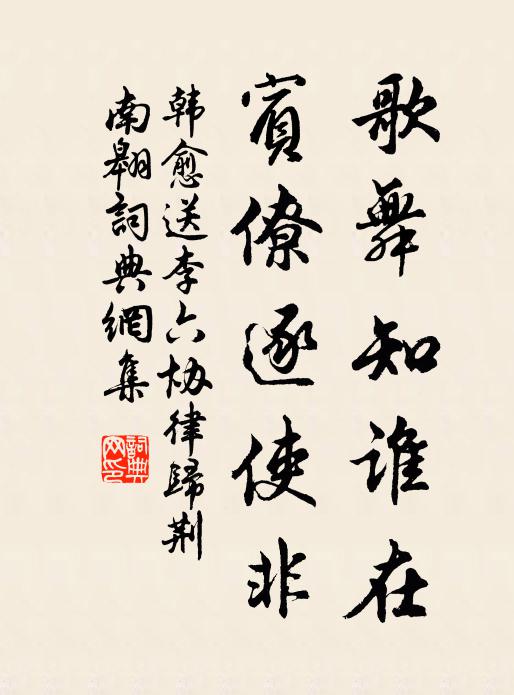 歌舞知誰在
賓僚逐使非
韩愈送李六协律歸荆
南翱詞典網集
詞典网印